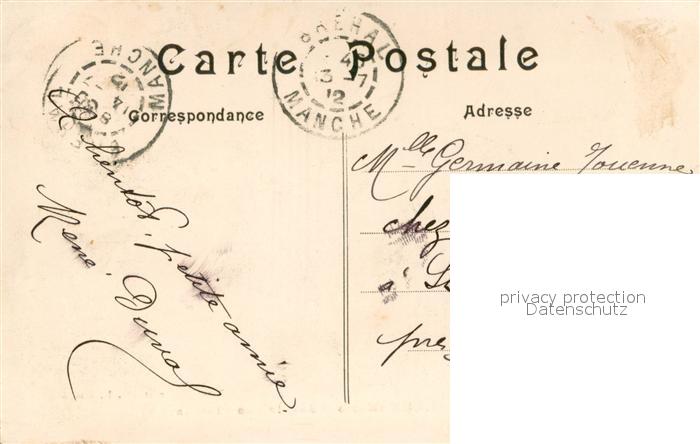 Carte Postale
Correspondance
Adresse
BRÉHAL
4
3 - 7
12
MANCHE
MANCHE
A bientôt, petite amie.
Duval
Mlle Germaine Jouenne
chez
à
près
privacy protection
Datenschutz